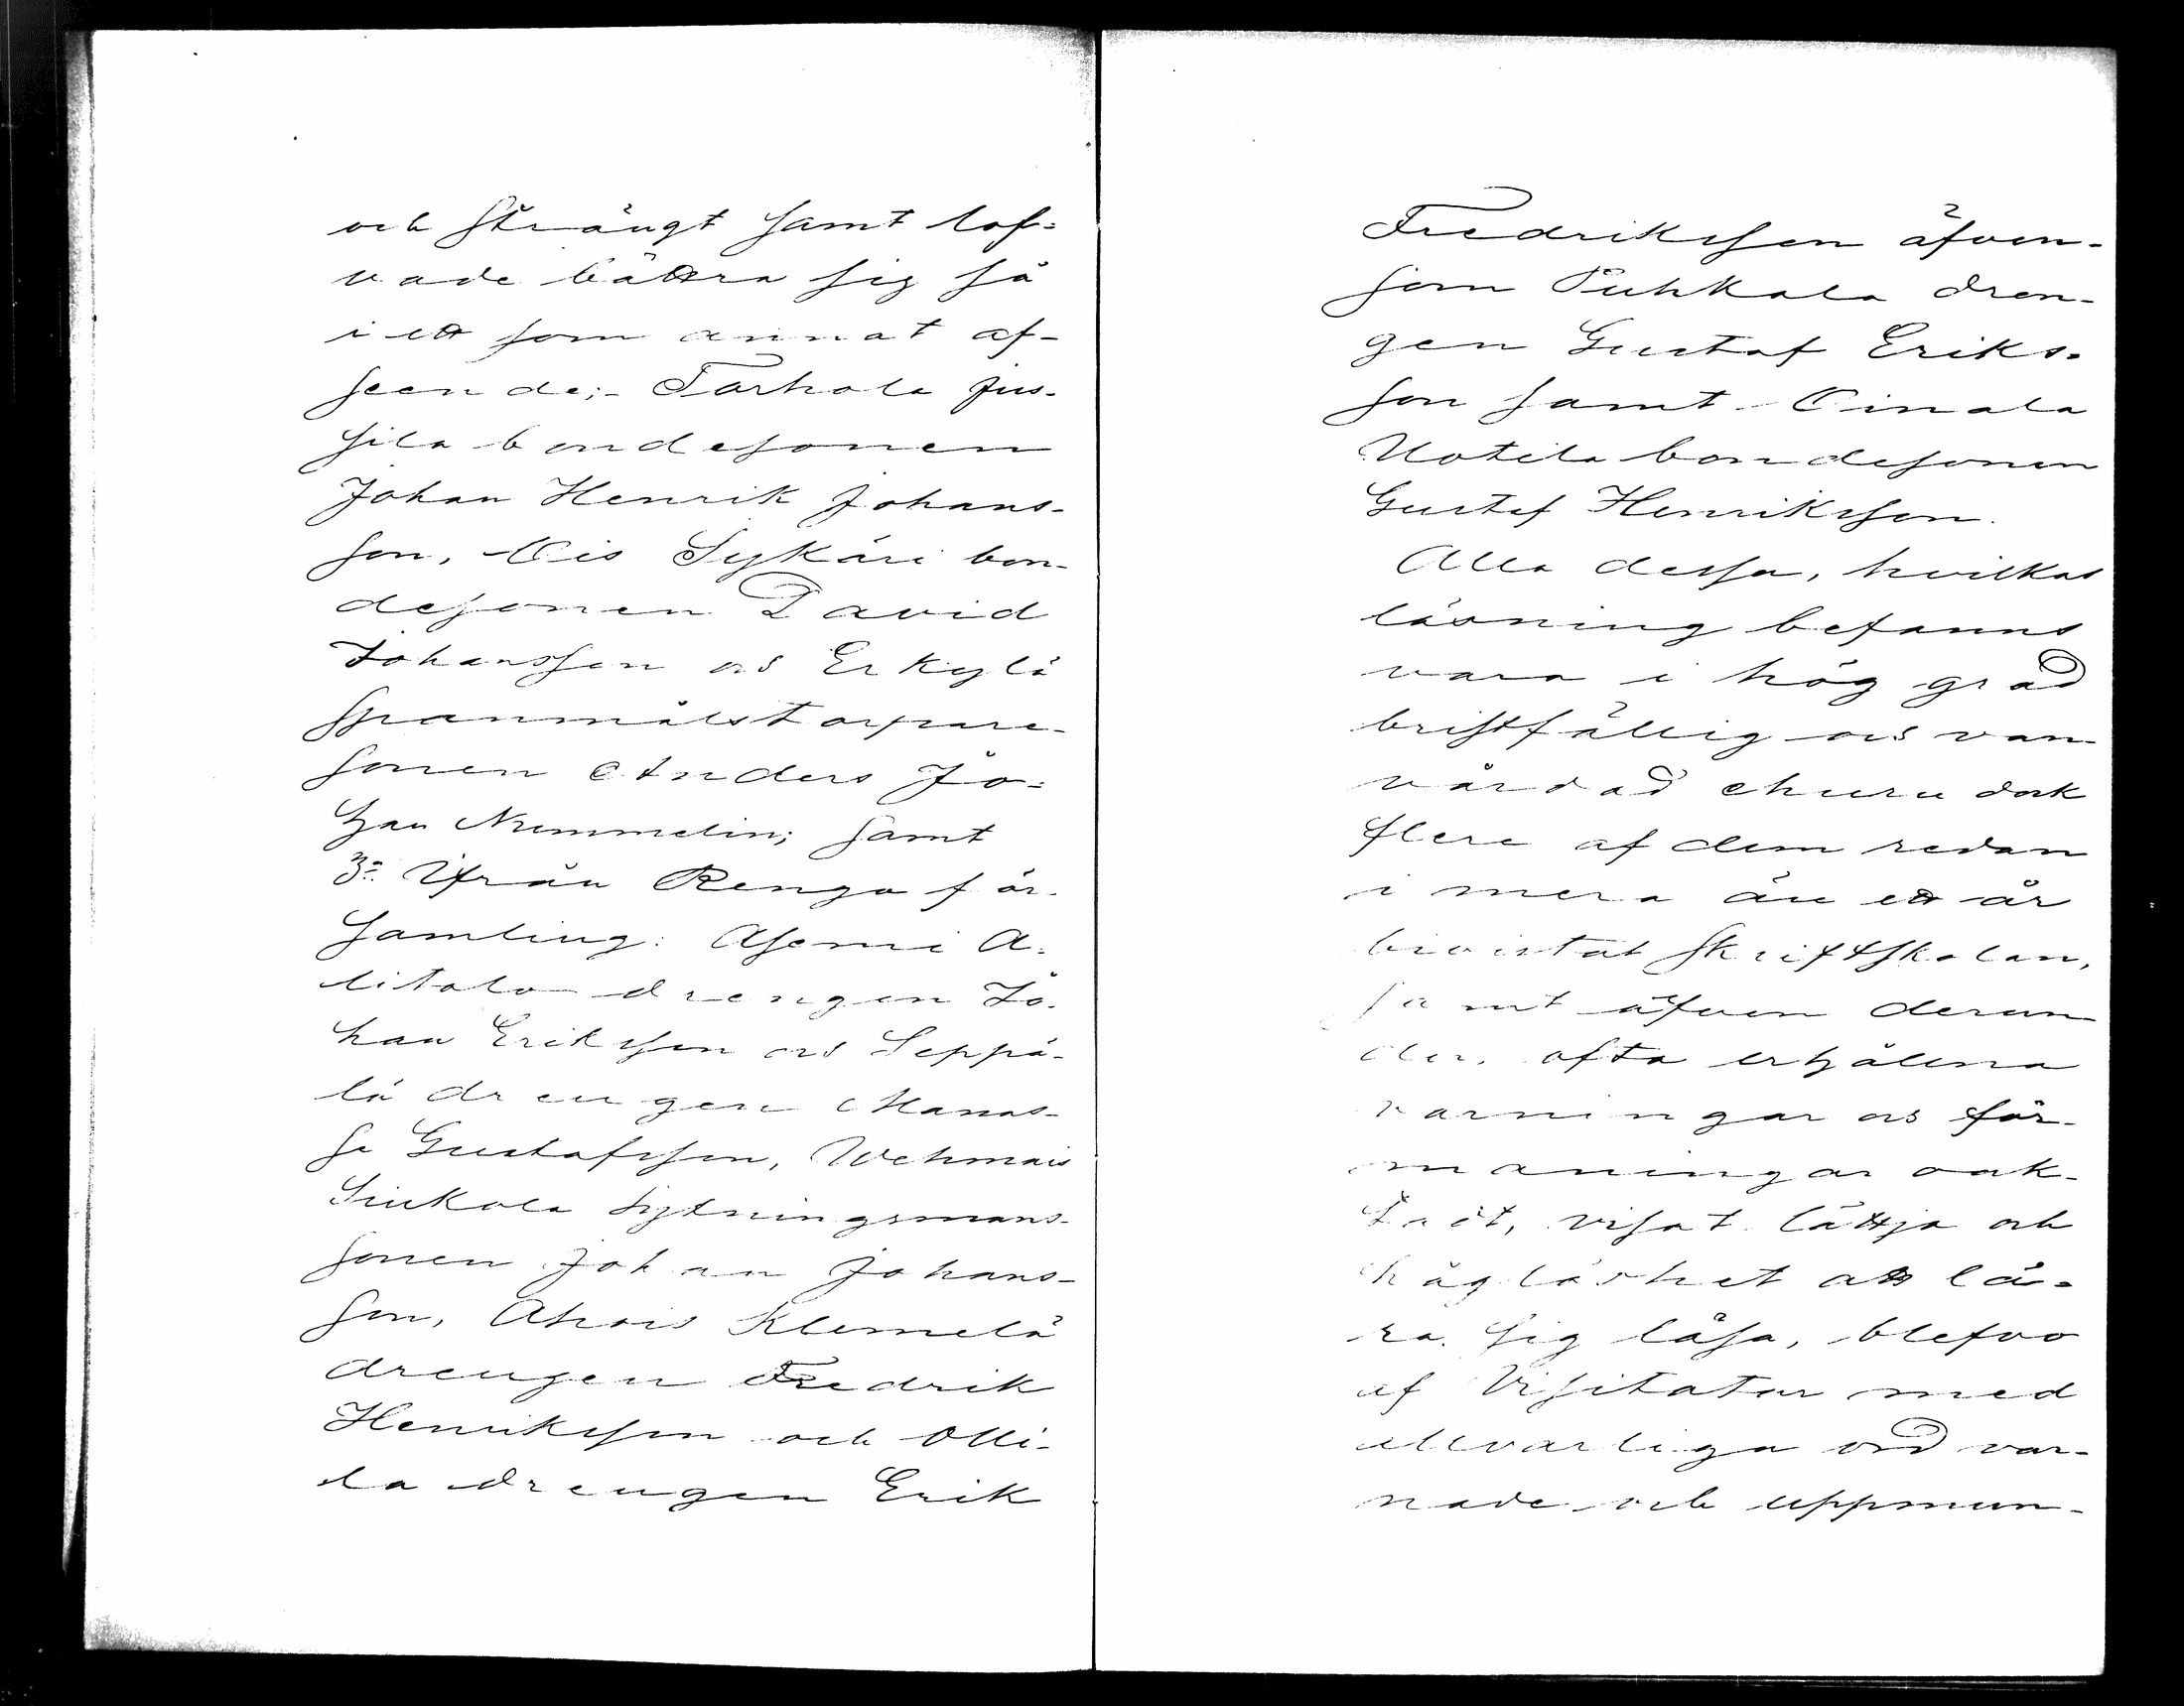 och strängt samt lof-
vade bättra sig så
i ett som annat af-
seende;- Tarhola Jus-
sila bondesonen
Johan Henrik Johans-
son, Ois Sykäri bon-
desonen David
Johansson och Erkylä
spanmålstorpare-
sonen Anders Jo-
han Nummelin; samt
3:o Ifrån Rengo för-
samling: Asemi A-
litalo drengen Jo-
han Eriksson och Seppä-
lä drengen Manas-
se Gustafsson, Wehmais
Siukola sytningsmans-
sonen Johan Johans-
son, Ahois Klemelä
drengen Fredrik
Henriksson och Olli-
la drengen Erik
Fredriksson äfven-
som Puhkala dren-
gen Gustaf Eriks-
son samt Oinala
Uotila bondesonen
Gustaf Henriksson.
Alla dessa, hvilkas
läsning befanns
vara i hög grad
bristfällig och van-
vårdad ehuru dock
flere af dem redan
i mera än ett år
bivistat skriftskolan,
samt äfven derun-
der, ofta erhållna
varningar och för-
maningar oak-
tadt, visat lättja och
håglöshet att lä-
ra sig läsa, blefvo
af Visitator med
allvarliga ord var-
nade och uppmun-